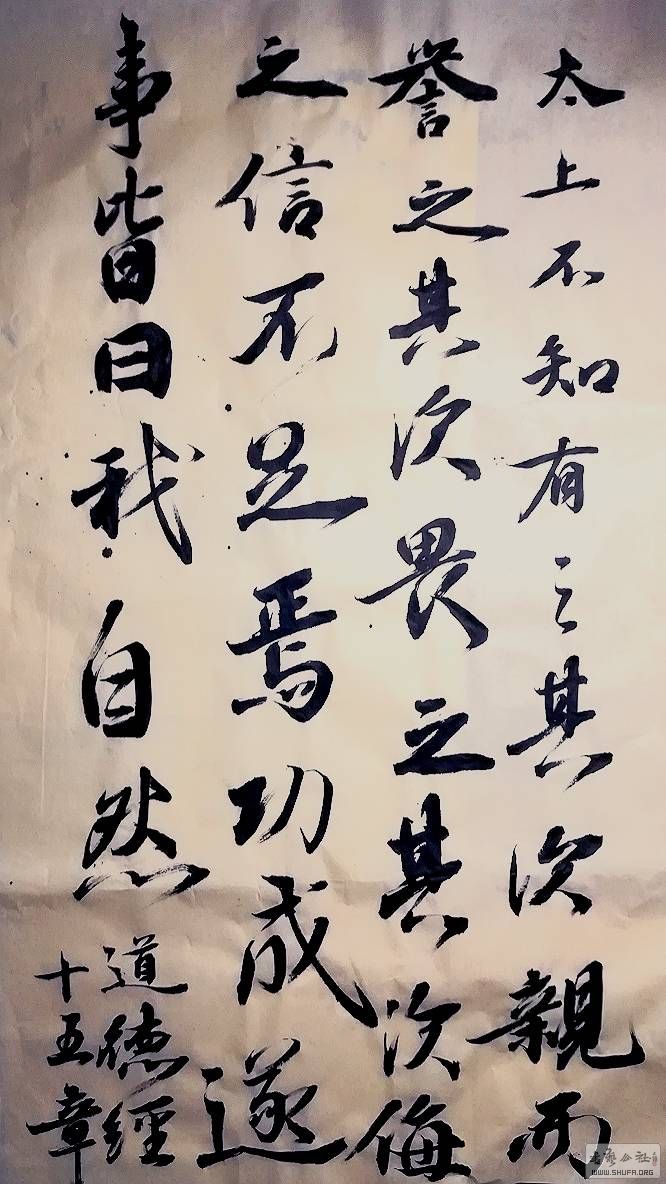 太上不知有之其次親而
譽之其次畏之其次侮
之信不足焉功成遂
事皆曰我自然
道德經
十五章
WWW.SHUFA.ORG